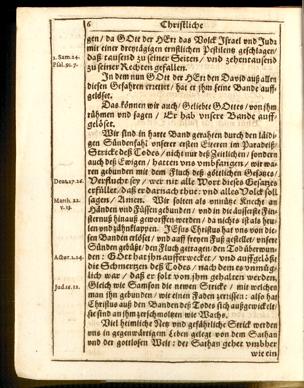 6 Christliche
gen / da GOtt der HErr das Volck Israel und Juda
mit einer dreytägigen ernstlichen Pestilentz geschlagen /
daß tausend zu seiner Seiten / und zehentausend
zu seiner Rechten gefallen.
2. Sam. 24.
Psal. 91. 7.
In dem nun GOtt der HErr den David auß allen
diesen Gefahren errettet / hat er ihm seine Bande auff-
gelöset.
Das können wir auch / Geliebte GOttes / von ihm
rühmen und sagen / Er hab unsere Bande auff-
gelöset.
Wir sind in harte Band gerahten durch den läidi-
gen Sündenfahl unserer ersten Eltern im Paradeiß:
Stricke deß Todes / nicht nur deß Zeitlichen / sondern
auch deß Ewigen / hatten uns umbfangen / wir wa-
ren gebunden mit dem Fluch deß göttlichen Gesätzes /
Verflucht sey / wer nit alle Wort dieses Gesätzes
erfüllet / daß er darnach thue: und alles Volck soll
sagen / Amen. Wir solten als unnütze Knecht an
Händen und Füssen gebunden / und in die äusserste Fin-
sternuß hinauß geworffen werden / da nichts ist als heu-
len und zähnklappen. JEsus Christus hat uns von die-
sen Banden erlößt / und auff freyen Fuß gestellet / unsere
Sünden gebüßt / den Fluch getragen / den Tod überwun-
den: GOtt hat ihn aufferwecket / und auffgelößt
die Schmertzen deß Todes / nach dem es unmüg-
lich war / daß er solt von ihm gehalten werden.
Deut. 27. 26.
Matth. 22.
v. 13.
Actor. 2. 24.
Gleich wie Samson die newen Stricke / mit welchen
man ihn gebunden / wie einen Faden zerrissen: also hat
Christus auß den Banden deß Todes sich außgewickelt /
sie sind an ihm zerschmoltzen wie Wachs.
Jud. 15. 12.
Viel heimliche Netz und gefährliche Strick werden
uns in gegenwärtigem Leben gelegt von dem Sathan
und der gottlosen Welt: der Sathan gehet umbher
wie ein